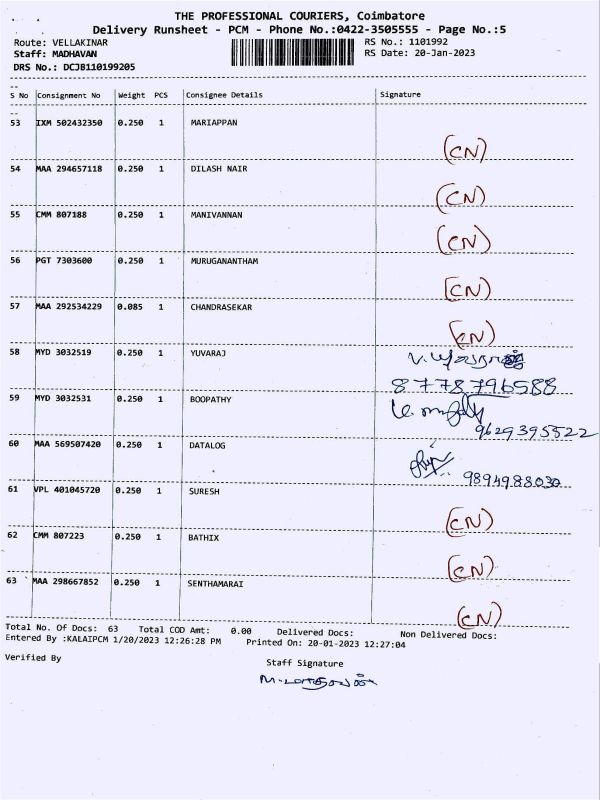 THE PROFESSIONAL COURIERS, Coimbatore
Delivery Runsheet - PCM - Phone No.:0422-3505555 - Page No.:5
Route: VELLAKINAR RS No.: 1101992
Staff: MADHAVAN RS Date: 20-Jan-2023
DRS No.: DCJB110199205
S No Consignment No Weight PCS Consignee Details Signature
53 IXM 502432350 0.250 1 MARIAPPAN
(CN)
54 MAA 294657118 0.250 1 DILASH NAIR
(CN)
55 CMM 807188 0.250 1 MANIVANNAN
(CN)
56 PGT 7303600 0.250 1 MURUGANANTHAM
(CN)
57 MAA 292534229 0.085 1 CHANDRASEKAR
(CN)
58 MYD 3032519 0.250 1 YUVARAJ
8778796588
59 MYD 3032531 0.250 1 BOOPATHY
9629395522
60 MAA 569507420 0.250 1 DATALOG
9894988030
61 VPL 401045720 0.250 1 SURESH
(CN)
62 CMM 807223 0.250 1 BATHIX
(CN)
63 MAA 298667852 0.250 1 SENTHAMARAI
(CN)
Total No. Of Docs: 63 Total COD Amt: 0.00 Delivered Docs: Non Delivered Docs:
Entered By :KALAIPCM 1/20/2023 12:26:28 PM Printed On: 20-01-2023 12:27:04
Verified By Staff Signature